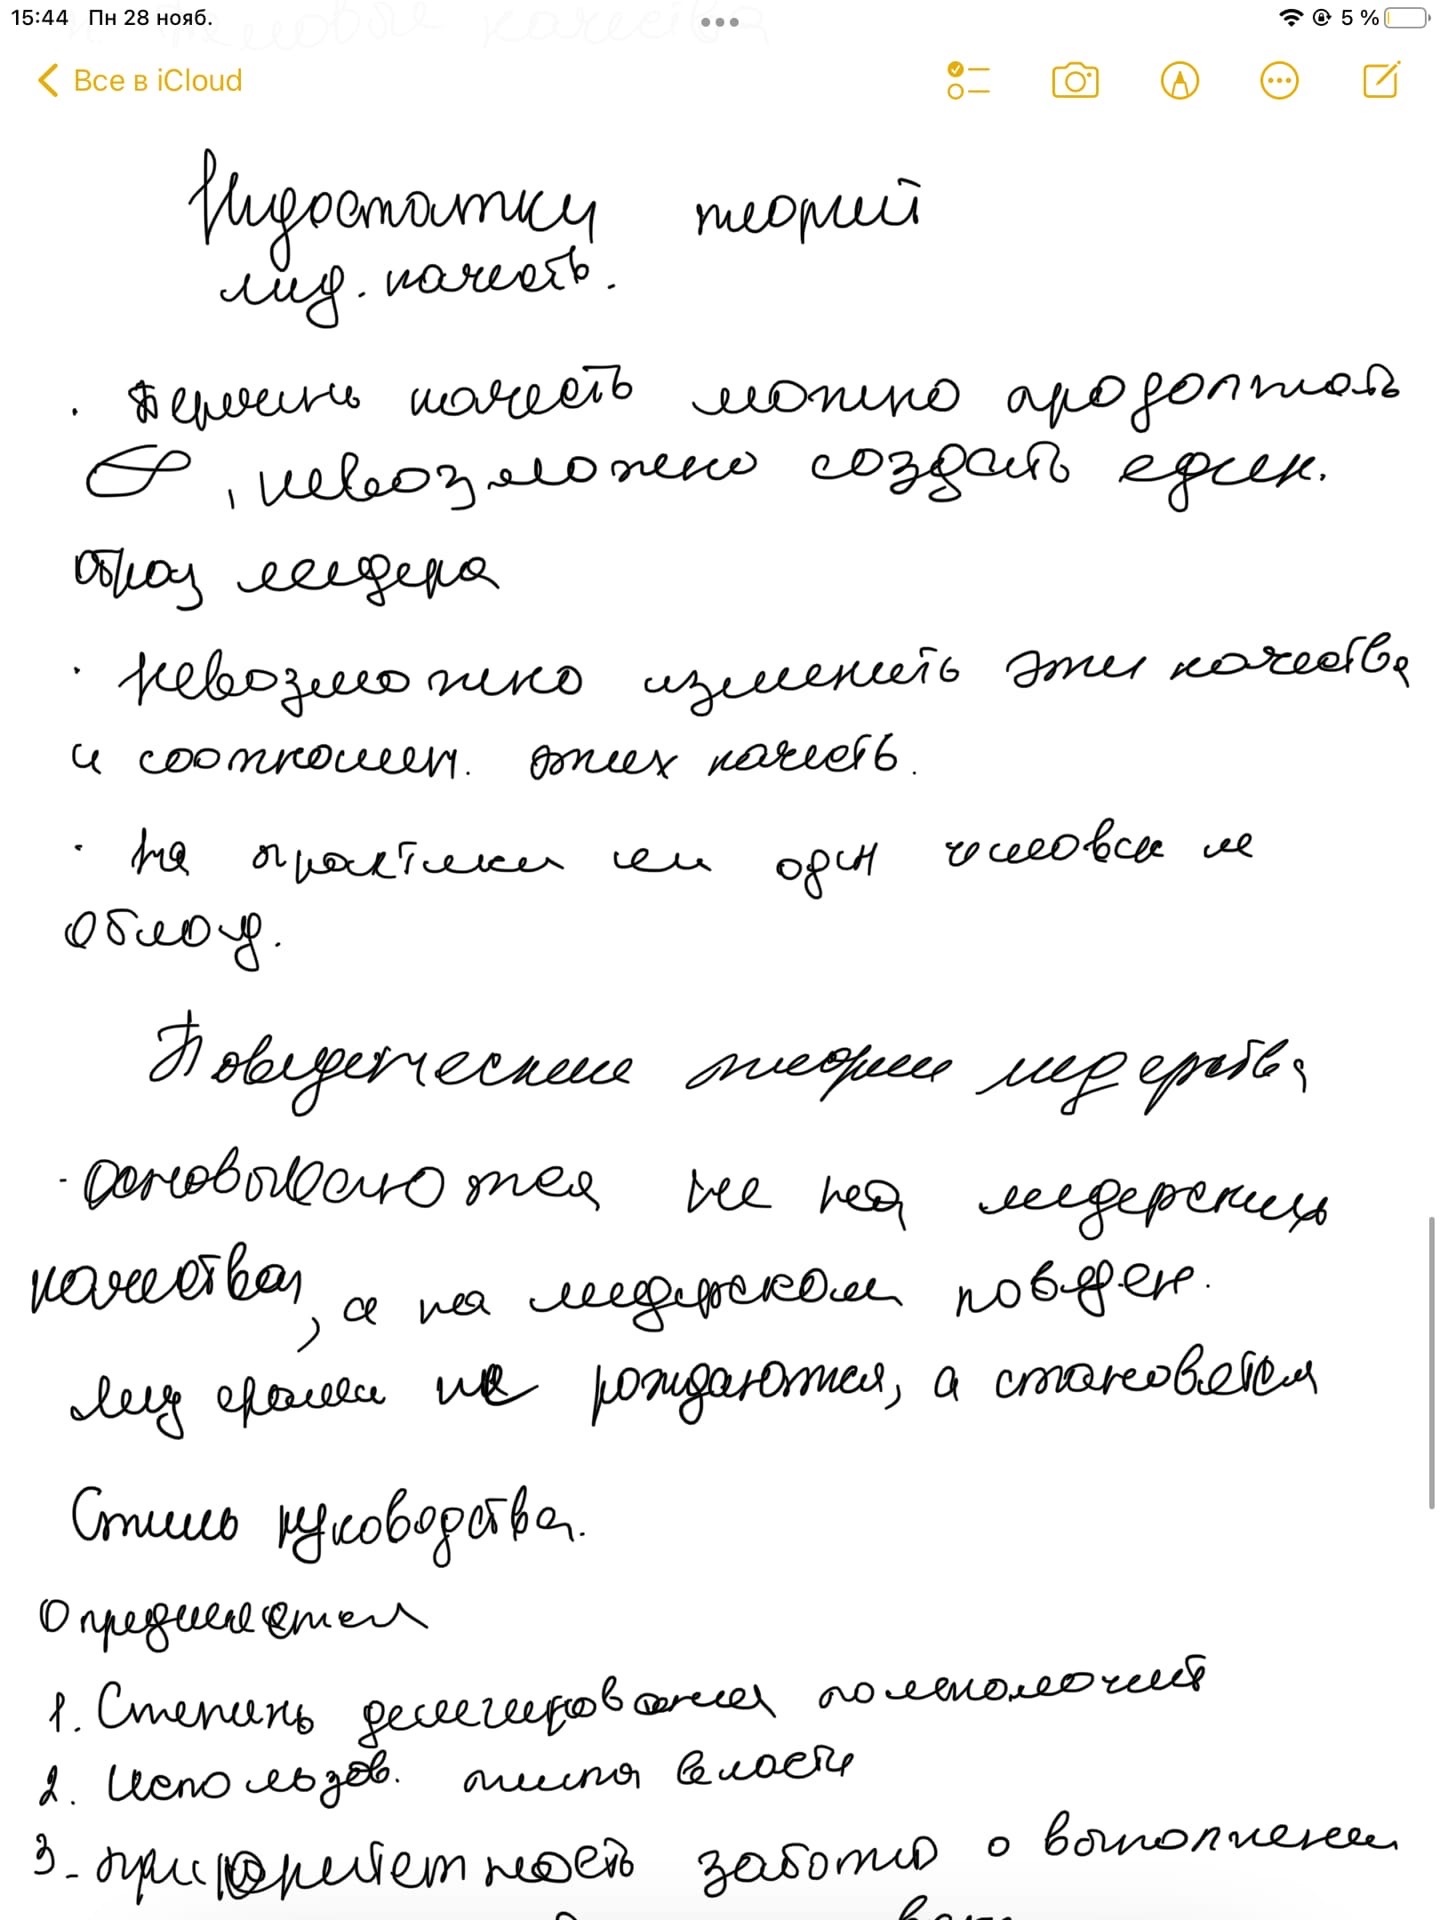 15:44 Пн 28 нояб.
5 %
Все в iCloud
Нидостатки теорий
лид. качеств.
· Перечень качеств можно продолжать
, невозможно создать един.
образ лидера
· невозможно изменить эти качества
и соотношен. этих качеств.
· На практики ни один человек не
облад.
Поведенческие теории лидерства
- Основываются не на лидерских
качествах, а на лидерском поведен.
Лидерами не рождаются, а становятся
Стиль руководства.
Определяется
1. Степень делегирования полномочий
2. Использов. типа власти
3 - приоритетность заботы о выполнении